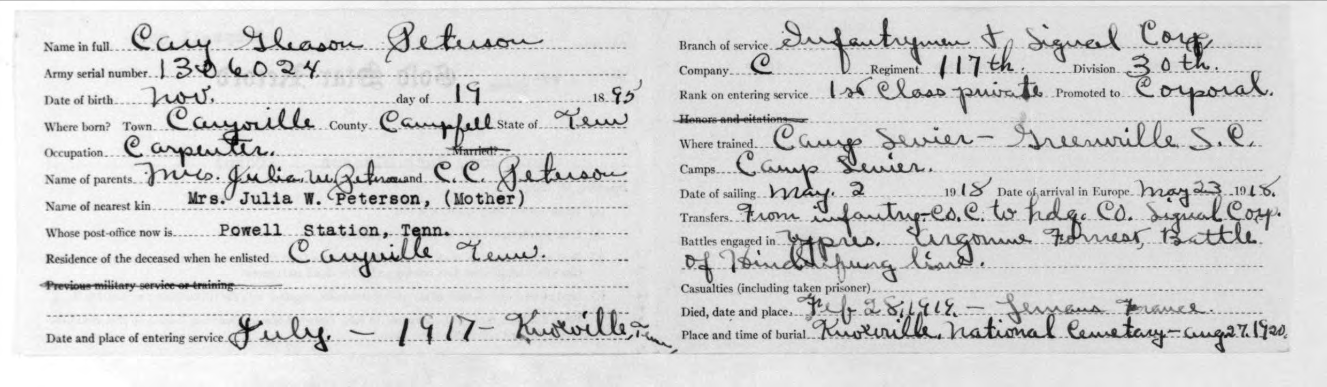 Name in full Cary Gleason Peterson
Army serial number 1306024
Date of birth Nov. day of 19 1895
Where born? Town Caryville County Campfell State of Tenn
Occupation Carpenter. Married?
Name of parents Mrs. Julia W. Peterson and C. C. Peterson
Name of nearest kin Mrs. Julia W. Peterson, (Mother)
Whose post-office now is Powell Station, Tenn.
Residence of the deceased when he enlisted Caryville Tenn.
Previous military service or training
Date and place of entering service July. - 1917 - Knoxville, Tenn,
Branch of service Infantrymen & Signal Corp
Company C Regiment 117th. Division 30th.
Rank on entering service 1st Class private Promoted to Corporal.
Honors and citations
Where trained Camp Sevier - Greenville S.C.
Camps Camp Sevier.
Date of sailing May. 2 1918 Date of arrival in Europe May 23 1918.
Transfers From infantry-Co. C. to hdq. Co. Signal Corp.
Battles engaged in Ypres. Argonne Forrest, Battle
of Hindenburg line.
Casualties (including taken prisoner)
Died, date and place, Feb 28, 1919. - Lemans France.
Place and time of burial Knoxville, National Cemetary - Aug 27. 1920.